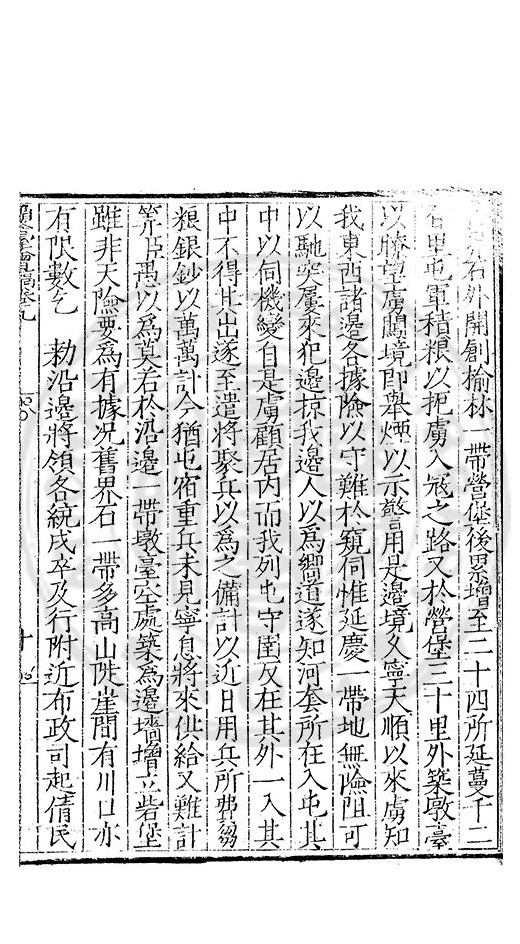 界石外開創榆林一帶營堡後累增至二十四所延蔓千二
百里屯軍積粮以扼虜入寇之路又於營堡三十里外築墩臺
以瞭望虜闖境即舉煙以示警用是邊境久寧天順以來虜知
我東西諸邊各據險以守難於窺伺惟延慶一帶地無險阻可
以馳突屢來犯邊掠我邊人以爲嚮道遂知河套所在入屯其
中以伺機變自是虜顧居内而我列屯守圉反在其外一入其
中不得其出遂至遣將聚兵以爲之備計以近日用兵所費芻
粮銀鈔以萬萬計今猶屯宿重兵未見寧息將來供給又難計
筭臣愚以爲莫若於沿邊一帶墩臺空處築爲邊墻增立砦堡
雖非天險要爲有據况舊界石一帶多高山陡崖間有川口亦
有限數乞 勑沿邊將領各統戍卒及行附近布政司起倩民